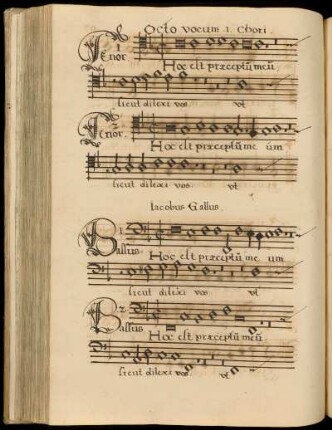 Octo vocum 1. Chori.
1
Tenor.
Hoc est præceptū meū
sicut dilexi vos. vt
2
Tenor.
Hoc est præceptū me um
sicut dilexi vos. vt
Iacobus Gallus.
1.
Bassus.
Hoc est præceptū me um
sicut dilexi vos vt
2.
Bassus
Hoc est præceptū meū
sicut dilexi vos. vt